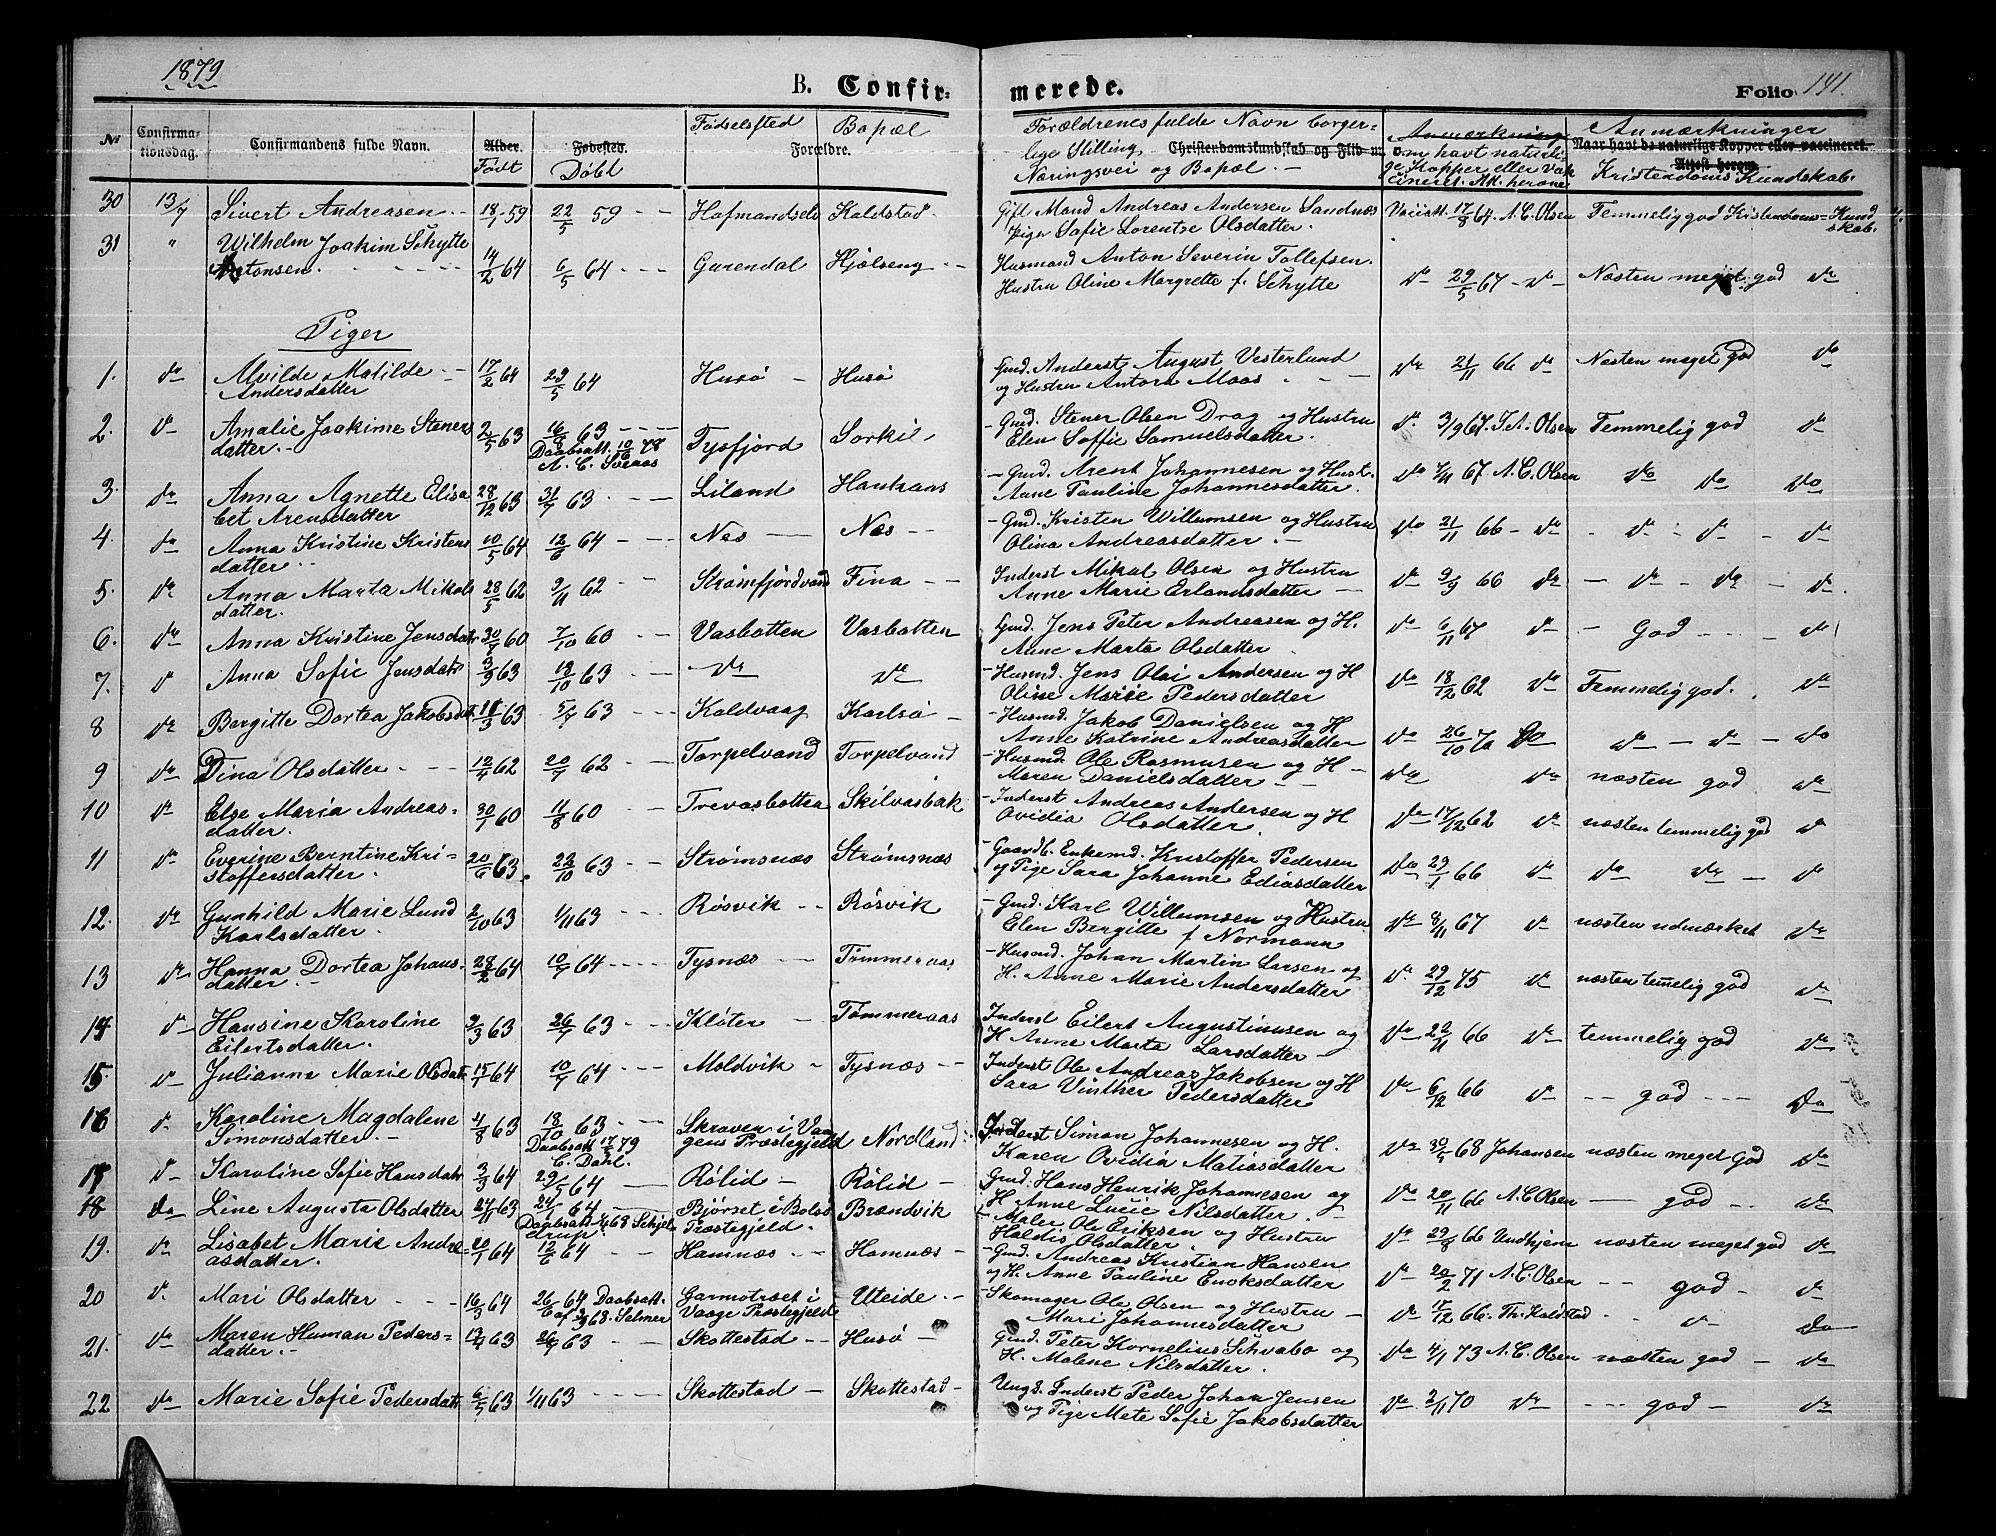 1879
B. Confir- merede. Folio 141.
№ Confirma-tionsdag. Confirmandens fulde Navn. Alder. Født Fødested. Døbt Fødselsted Bopæl Forældre.
Forældrenes fulde Navn borger-
lige Stilling, Christendomskundskab og Flid
Næringsvei og Bopæl. —
Anmærkning om havt naturli-
ge Kopper eller vak
cineret. Att. herom
Anmærkninger
Naar havt de naturlige Kopper eller vaccineret.
Attest herom.
Kristendoms Kundskab.
30 13/7 Sivert Andreasen 18/1 59 22/5 59 Kaldstad Gift Mand Andreas Andersen Sandnæs Vacc. att. 17/8 64. A. C. Olsen Temmelig god Kristendoms-Kund
Pige Sofie Lorentse Olsdatter. skab.
31 " Wilhelm Joakim Schytte
Antonsen. 14/2 64 6/5 64 Garendal Hjelseng Husmand Anton Severin Tollefsen. do 29/5 67 do Næsten meget god do
Hustru Oline Margrette f. Schytte
Piger
1. do Alvilde Matilde
Andersdatter 17/2 64 29/5 64 Husø Husø Gmd. Anderst August Vesterlund do 21/11 66 do Næsten meget god do
og Hustru Antora Moas
2. do Amalie Joakime Steners
datter. 2/5 63 16/8 63 Tysfjord Sorkil Gmd. Stener Olsen Drag og Hustru do 3/9 67. A. Olsen Temmelig god do
Daabsatt. 10/6 78 Elen Soffie Samuelsdatter.
A. C. Svenas
3. do Anna Agnette Elisa
bet Arensdatter 28/12 63 31/7 63 Liland Haukaas Gmd. Arent Johannesen og Hust. do 7/11 67 A. C. Olsen do do do
Anne Pauline Johannesdatter.
4. do Anna Kristine Kristens
datter 10/5 64 12/6 64 Nes Næs Gmd. Kristen Willumsen og Hustru do 21/11 66 do do do do
Olina Andreasdatter
5. do Anna Marta Mikals
datter. 28/5 62 2/11 62 Strømfjordvand Fina Inderst Mikal Olsen og Hustru do 9/9 66 do do do do
Anne Marie Erlandsdatter
6. do Anna Kristine Jensdatr 30/7 60 7/10 60 Vasbotten Vasbotten Gmd. Jens Peter Andreasen og H. do 6/11 67 do God do
Anne Marta Olsdatter
7. do Anna Sofie Jensdatr 3/9 63 18/10 63 do do Husmd. Jens Olai Andersen og H do 18/12 62 do Temmelig god. do
Oline Marie Pedersdatter
8 do Bergitte Dortea Jakobsdat. 11/3 63 5/7 63 Kaldvaag Karlsø Husmd. Jakob Danielsen og H do 26/10 70 do do do do
Anne Katrine Andreasdatter
9 do Dina Olsdatter 12/4 62 20/7 62 Torpelvand Torpelvand Husmd. Ole Rasmusen og H do do næsten god do
Maren Danielsdatter
10 do Else Maria Andreas-
datter. 30/1 60 11/8 60 Trevasbotten Skilvasbak Inderst Andreas Andersen og H do 17/12 62 do næsten temmelig god do
Ovidia Olsdatter.
11 do Everine Berntine Kri-
stoffersdatter. 20/6 63 22/10 63 Strømsnæs Strømsnæs Gaardb. Enkemd. Kristoffer Pedersen do 29/1 66 do do do do
og Pige Sara Johanne Ediasdatter
12. do Gunhild Marie Lund
Karlsdatter. 2/10 63 1/11 63 Røsvik Røsvik Gmd. Karl Willumsen og Hustru do 8/11 67 do næsten udmærket do
Elen Bergitte f Normann
13 do Hanna Dortea Johans-
datter. 28/2 64 10/7 64 Tysnæs Tømmeraas Husmd. Johan Martin Larsen og do 29/12 75 do næsten temelig god do
H. Anne Marie Andersdatter
14. do Hansine Karoline
Eilertsdatter. 2/3 63 26/7 63 Kløter Tømmeraas Inderst Eilert Augustinusen og do 22/11 66 do temmelig god do
H Anne Marta Larsdatter
15 do Julianna Marie Olsdatr 15/1 64 10/7 64 Moldvik Tysnæs Inderst Ole Andreas Jakobsen og H do 6/12 66 do god do
Sara Vinther Pedersdatter
16 do Karoline Magdalene
Simonsdatter. 4/8 63 18/10 63 Skraven i Vaa
gens Præstegjeld Nordland Inderst Simon Johannesen og H. do 30/4 68 Johansen næsten meget God do
Daabsatt. 17/5 79 Karen Ovidia Matiasdatter
C. Dahl.
17 do Karoline Sofie Hansdatr 3/3 64 29/5 64 Rølid Rølid Gmd. Hans Henrik Johannesen og do 20/11 66 A. C. Olsen god do
H Anne Lucie Nilsdatter.
18 do Line Augusta Olsdatter 24/11 63 24/1 64 Bjørset i Bolsø
Præstegjeld. Brændvik Maler Ole Eriksen og Hustru do 29/8 66 Undhjem næsten meget god do
Haldis Olsdatter.
19. do Lisabet Marie Andre-
asdatter. 20/1 64 12/6 64 Hamnæs Hamnæs Gmd. Andreas Kristian Hansen do 20/2 71 A. C. Olsen god do
og H. Anne Pauline Enoksdatter
20 do Mari Olsdatter 16/3 64 26/6 64 Daabsatt.
af 2/9 68. Selmer Garmotræet i
Vaage Præstegjeld Uteide Skomager Ole Olsen og Hustru do 15/12 66. Th. Kaldstad do do
Mari Johannesdatter
21. do Maren Human Peders-
datter. 13/4 63 26/7 63 Skottestad Husø Gmd. Peter Kornelius Schvabo og do 4/1 73 A. C. Olsen næsten god do
H. Malene Nilsdatter.
22 do Marie Sofie Pedersdatr 6/5 63 1/11 63 Skottestad Skottestad Ungk. Inderst Peder Johan Jensen do 2/11 70 do god do
og Pige Mete Sofie Jakobsdatter